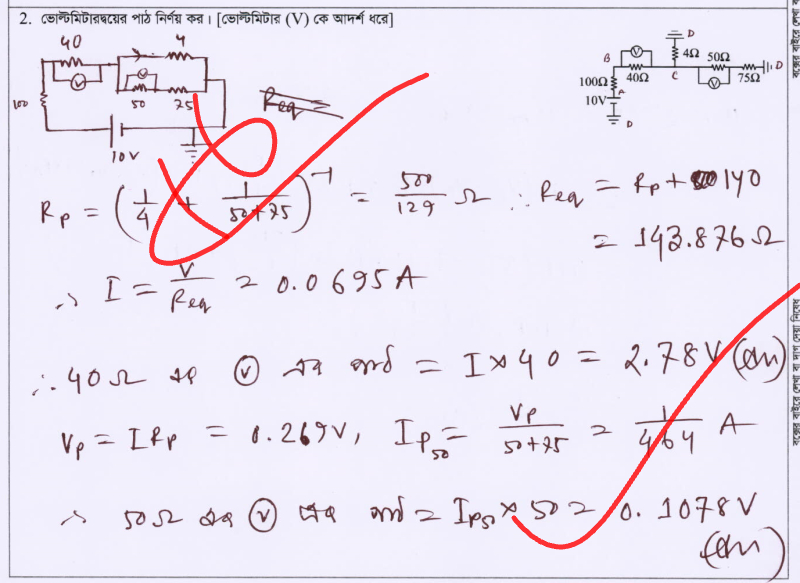 2. ভোল্টমিটারদ্বয়ের পাঠ নির্ণয় কর। [ভোল্টমিটার (V) কে আদর্শ ধরে]
40 4
V
V
50 75
100
10V
Req
D
4Ω
B V 50Ω D
100Ω 40Ω C V 75Ω
10V
D
Rp = (1/4 + 1/(50+75))^-1 = 500/129 Ω ∴ Req = Rp + 140
= 143.876 Ω
∴ I = V/Req = 0.0695 A
∴ 40Ω এর V এর পাঠ = I × 40 = 2.78V (Ans)
Vp = IRp = 0.269V, Ip50 = Vp/(50+75) = 1/464 A
∴ 50Ω এর V এর পাঠ = Ip50 × 50 = 0.1078V
(Ans)
বক্সের বাইরে লেখা বা দাগ দেয়া নিষেধ